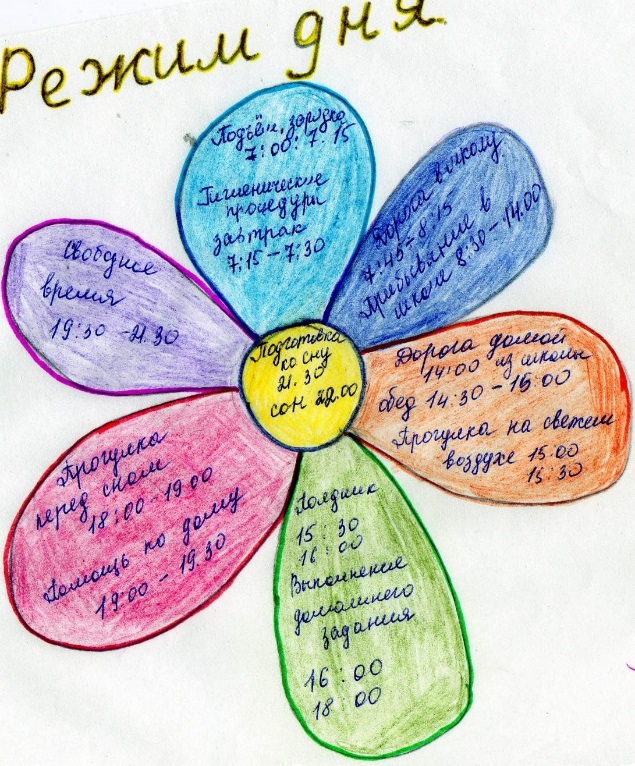 Режим дня
Подъём, зарядка
7:00: 7.15
Гигиенические
процедури
завтрак
7:15 - 7:30
Дорога в школу
7:45 - 8:15
Прибывание в
школе 8:30 - 14.00
Дорога домой
14:00 из школы
обед 14:30 - 15:00
Прогулка на свежем
воздухе 15:00
15:30
Полдник
15:30
16:00
Выполнение
домашнего
задания
16:00
18:00
Прогулка
перед сном
18:00 - 19:00
Помощь по дому
19:00 - 19.30
Свободне
время
19:30 - 21.30
Подготовка
ко сну
21.30
сон 22.00